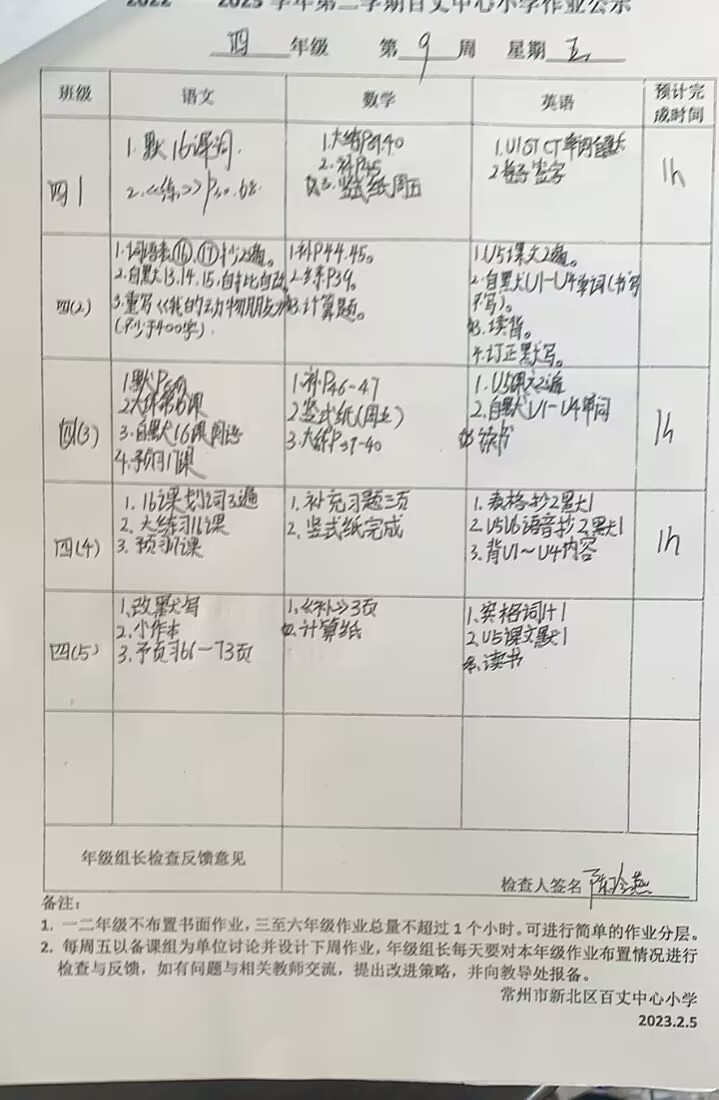 2022 2023学年第二学期百丈中心小学作业公示
四 年级 第 9 周 星期 五
班级 语文 数学 英语 预计完成时间
四1
1.默16课词.
2.《练》P
1.大练P39.40
2.补P45
3.竖式纸周五
1.U1 单词
2 签字
1h
四(2)
1.词语表⑯,⑰抄2遍。
2.自默13.14.15,自
3.重写《我的动物朋友》
(不少于400字).
1.补P44.45。
2. P39。
3.计算题。
1.U5课文2遍。
2.自默U1-U4单词(书写
不写)。
3.读背。
4.订正默写。
四(3)
1默
2大练第16课
3.自默16课词语
4.预习17课
1.补P46-47
2竖式纸(周五)
3.大练P39-40
1.U5课文2遍
2.自默U1-U4单词
读书
1h
四(4)
1.16课划词3遍
2.大练习16课
3.预习17课
1.补充习题三页
2.竖式纸完成
1.表格抄2默1
2.U5U6语音抄2默1
3.背U1~U4内容
1h
四(5)
1.改默写
2.小作本
3.予页习66-73页
1.《补》3页
2.计算纸
1. 格词1+1
2.U5课文默1
读书
年级组长检查反馈意见
检查人签名
备注:
1. 一二年级不布置书面作业,三至六年级作业总量不超过1个小时。可进行简单的作业分层。
2. 每周五以备课组为单位讨论并设计下周作业,年级组长每天要对本年级作业布置情况进行
检查与反馈,如有问题与相关教师交流,提出改进策略,并向教导处报备。
常州市新北区百丈中心小学
2023.2.5